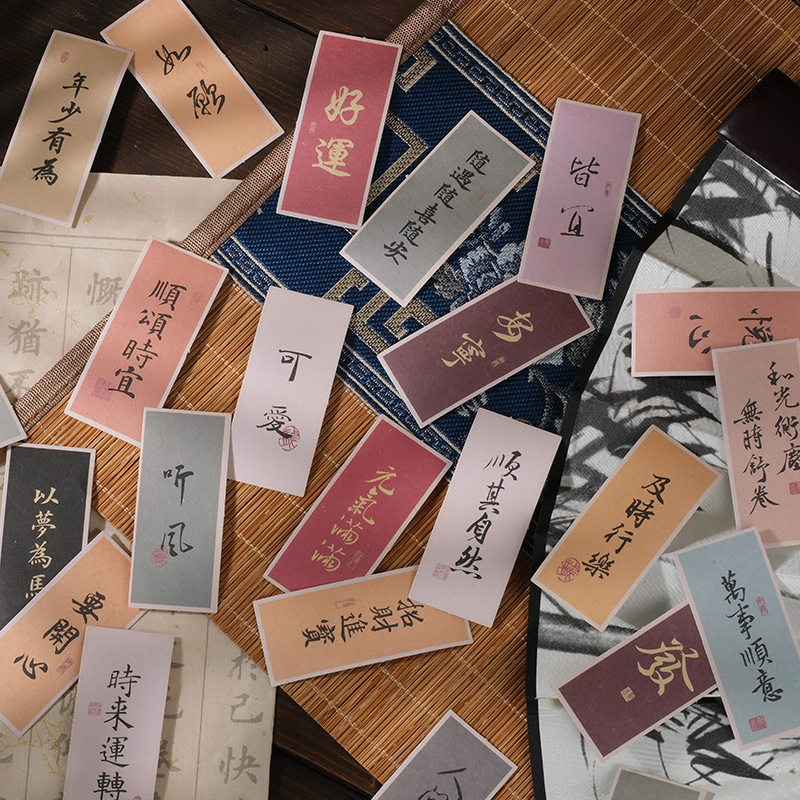 年少有為
如願
好運
隨遇隨喜隨安
皆宜
順頌時宜
可愛
安寧
和光衕塵
無時舒卷
听風
元氣滿滿
順其自然
及時行樂
以夢為馬
要開心
招財進寶
萬事順意
發
時来運轉
跡猶
慨
於己快